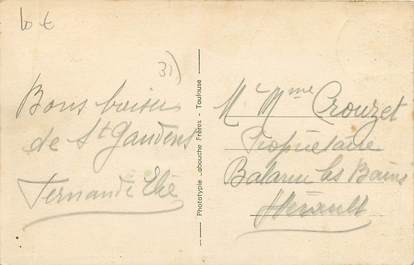 60 €
31)
Bons baisers
de St Gaudens
Fernande
Phototypie Labouche Frères - Toulouse
Mr Mme Crouzet
Propriétaire
Balaruc les Bains
Hérault